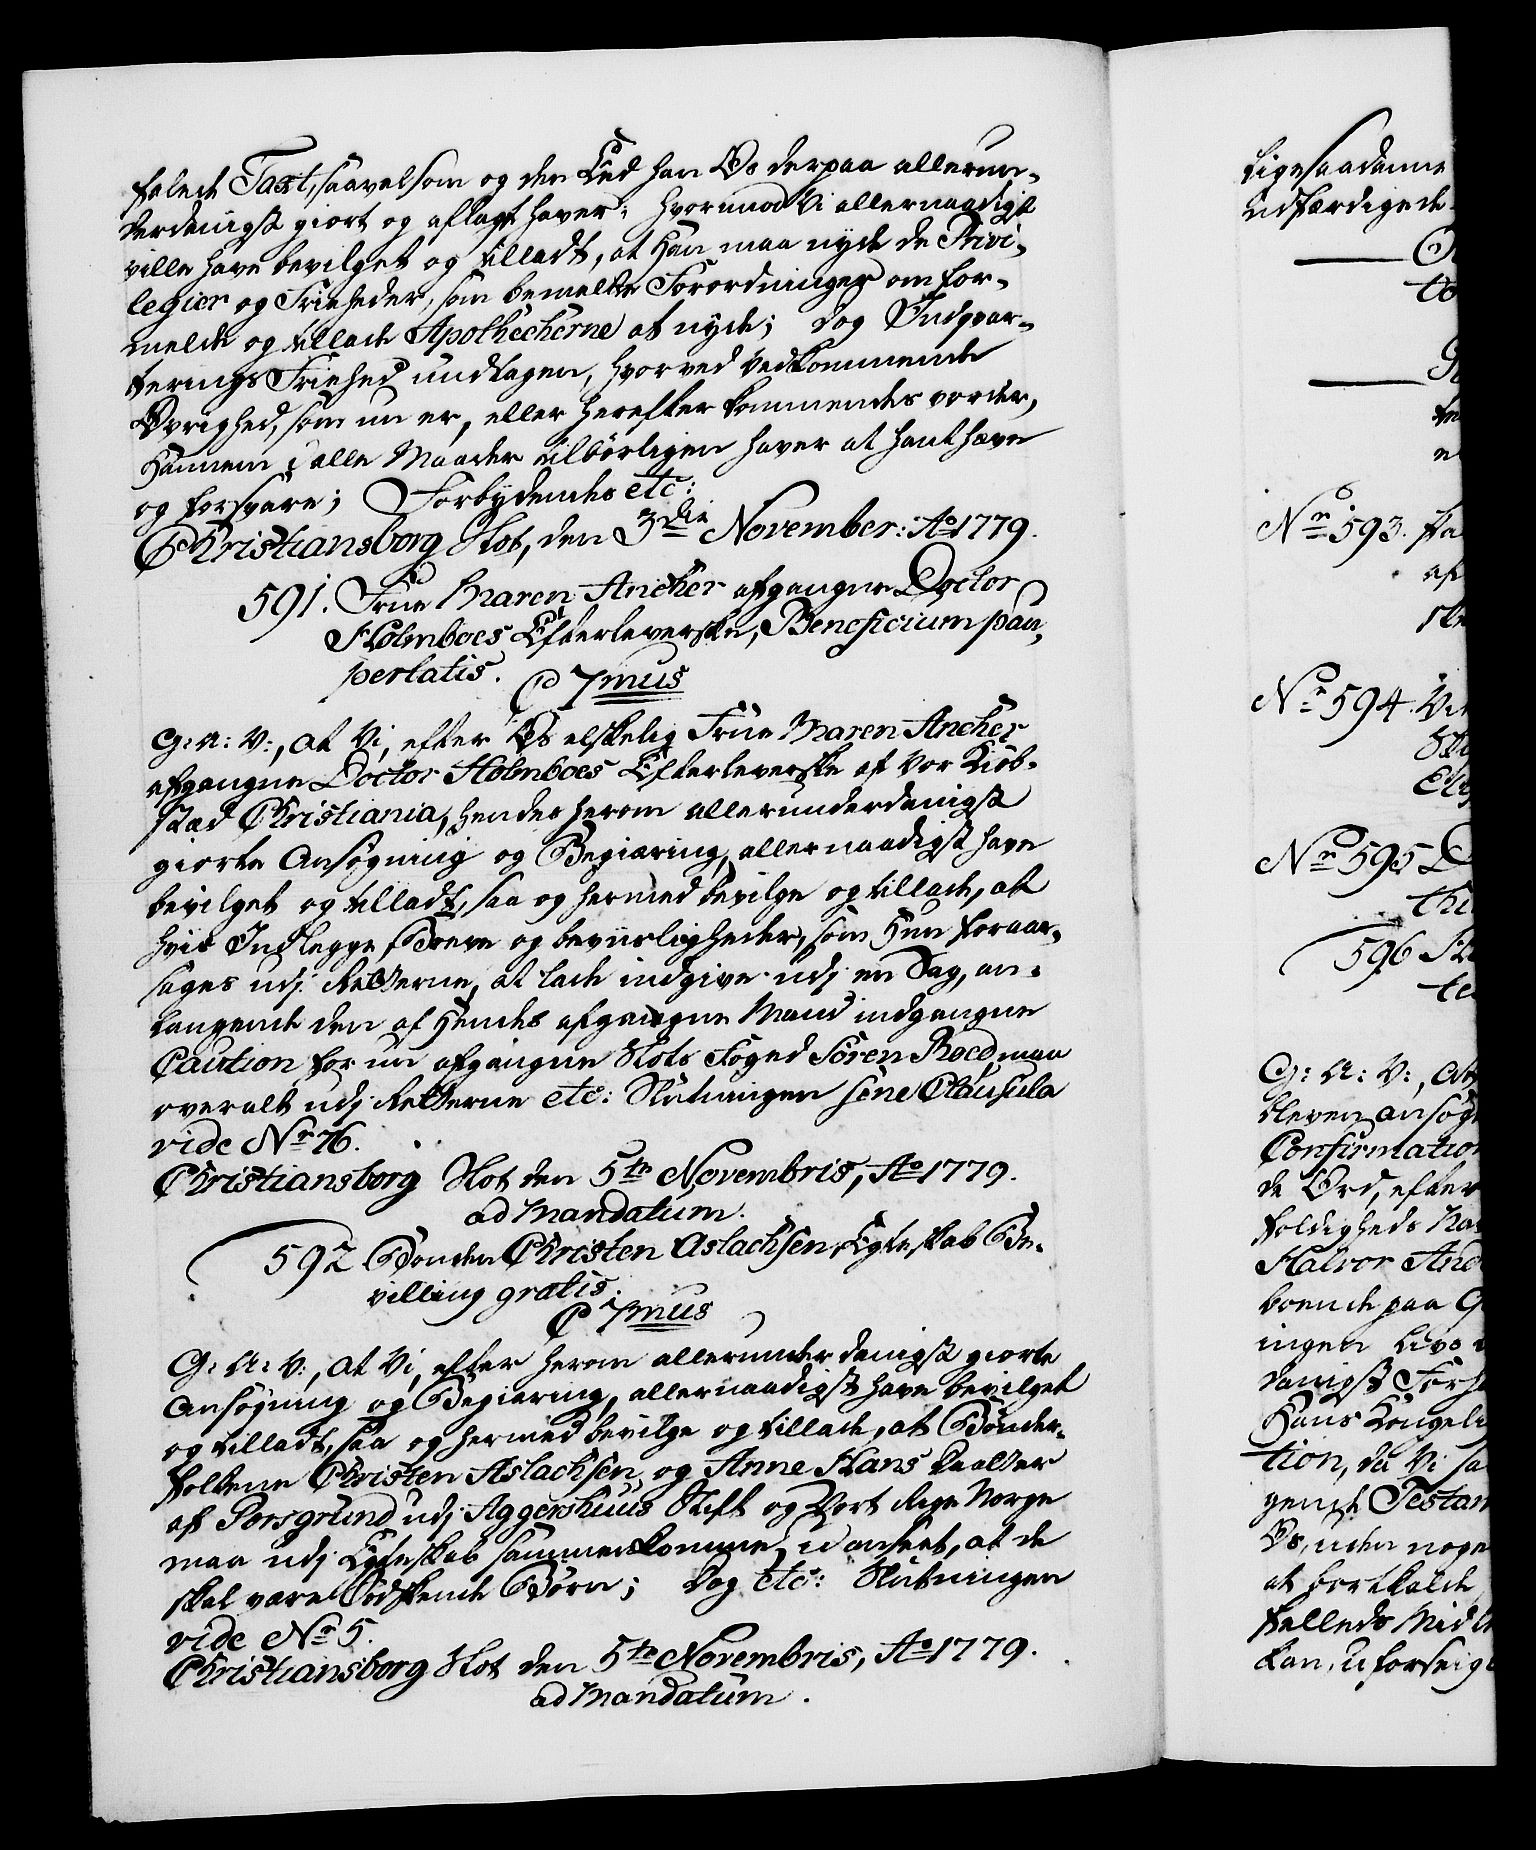 falede Taxt, saavelsom og den Eed han Os derpaa allerun-
derdanigst giort og aflagt haver; hvorimod Vi allernaadigst
ville have bevilget og tilladt, at Han maa nyde de Privi-
legier og Friheder, som bemeldte Forordninger om for-
melde og tillade Apothecherne at nyde; dog Indqvar-
terings Friehed undtagen, hvorved Vedkommende
Øvrighed, som nu er, eller herefter kommendes vorder,
Hannem i alle Maader tilbörligen haver at handthæve
og forsvare; Forbydendes etc:
Christiansborg Slot, den 3die November: Ao 1779.
591. Frue Maren Ancher afgangne Doctor
Holmboes Efterleverske, Beneficium pau-
pertatis.
C 7mus
G: A: V:, at Vi, efter Os elskelig Frue Maren Ancher
afgangne Doctor Holmboes Efterleverske af Vor Kiöb-
stæd Christiania, hendes herom allerunderdanigst
giorte Ansögning og Begiæring, allernaadigst have
bevilget og tilladt, saa og hermed bevilge og tillade, at
hvis Indlegge, Breve og beviisligheder, som Hun foraar-
sages udj Retterne, at lade indgive udj en Sag, an-
langende den af Hendes afgangne Mand indgangne
Caution for nu afgangne Slots Foged Sören Roed maa
overalt udj Retterne etc: Slutningen sine Clausula
vide No 76.
Christiansborg Slot den 5te Novembris, Ao 1779.
ad Mandatum.
592 Bonden Christen Aslachsen, Egteskab Be-
villing gratis.
C 7mus
G: A: V:, at Vi, efter herom allerunderdanigst giorte
Ansögning og Begiæring, allernaadigst have bevilget
og tilladt, saa og hermed bevilge og tillade, at Bönder-
folkene Christen Aslachsen, og Anne Hans Daatter
af Porsgrund udj Aggershuus Stift og Vort Rige Norge
maa udj Egteskab sammenkomme, uanseet, at de
skal være Sødskende Börn; Dog etc: Slutningen
vide No 5.
Christiansborg Slot den 5te Novembris, Ao 1779.
ad Mandatum.
ligesaadanne
udfærdigede
Nr 593.
Nr 594.
Nr 595
596
G: A: V:, at
bleven ansög
Confirmation
de Ord, efter
foldigheds
Halvor
boende paa
ingen Livs
danigst
Hans Kongeli
tion, da Vi
gende Testam
Os, uden noge
at
fælleds Midl
kan, uforseig